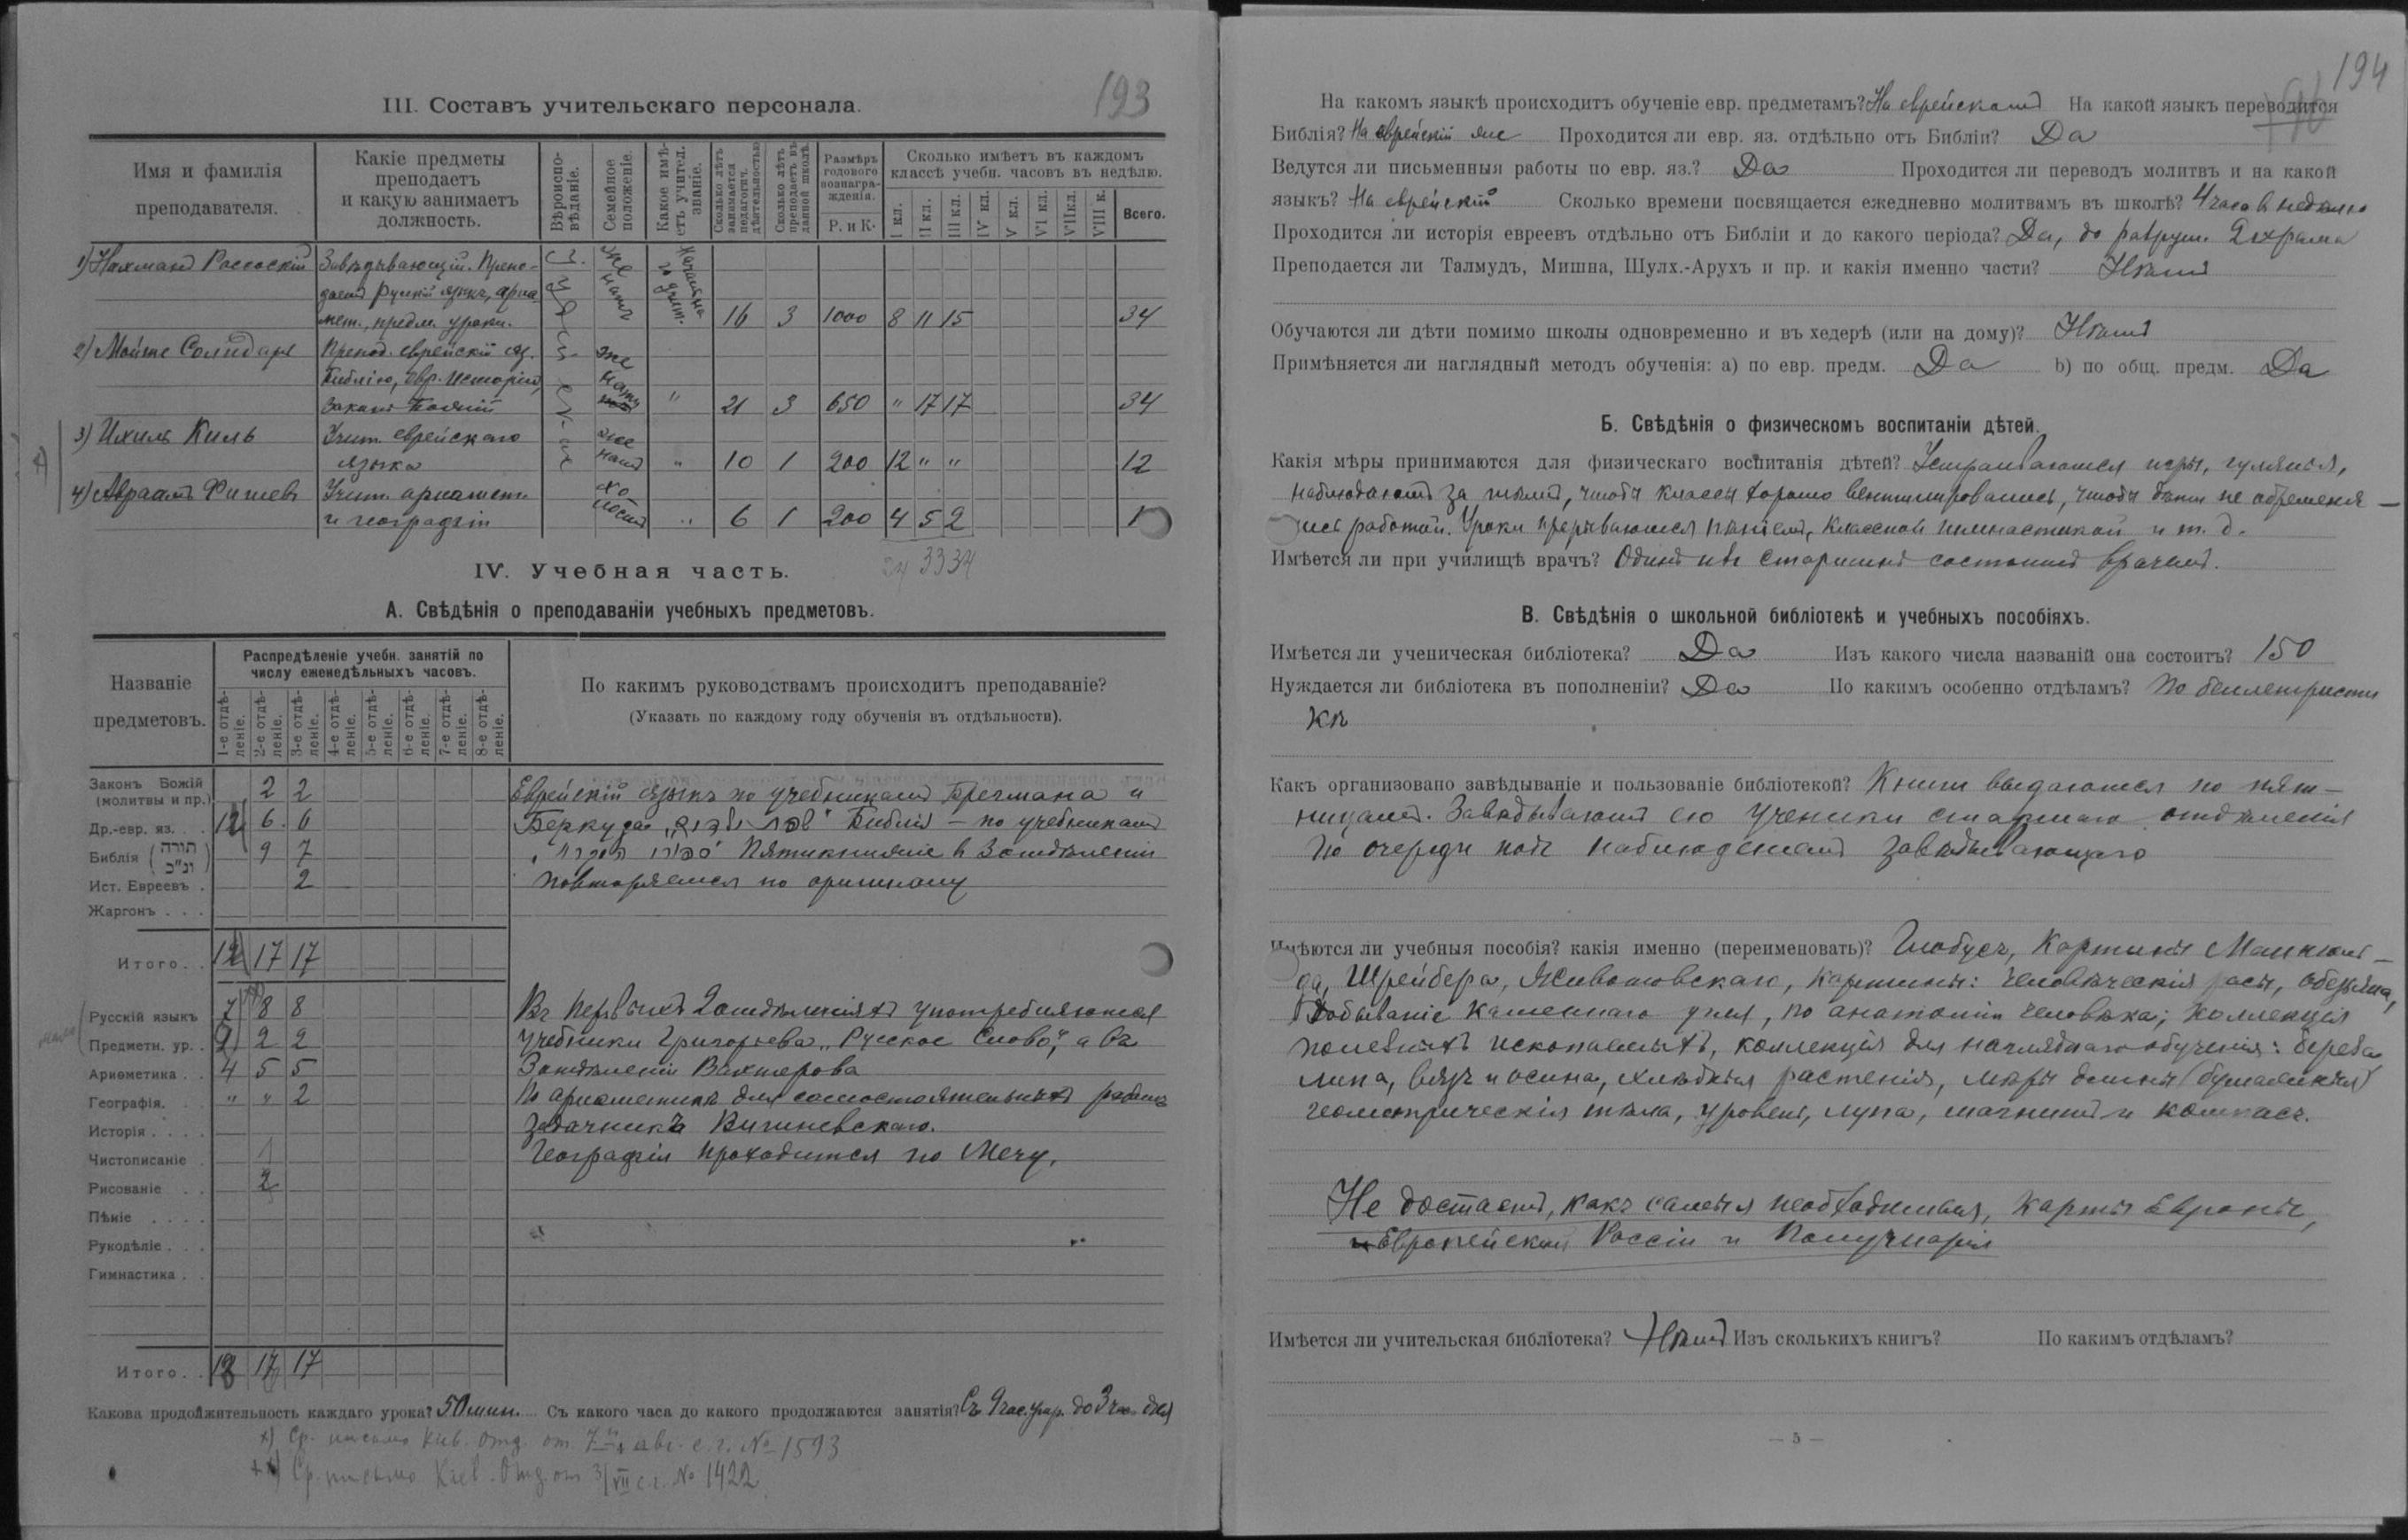 193
III. Составъ учительскаго персонала.
Имя и фамилія преподавателя.
Какіе предметы преподаетъ и какую занимаетъ должность.
Вѣроиспо-вѣданіе.
Семейное положеніе.
Какое имѣ-етъ учител. званіе.
Сколько лѣтъ занимается педагогич. дѣятельностью
Сколько лѣтъ преподаетъ въ данной школѣ.
Размѣръ годового вознагра-жденія.
Р. и К.
Сколько имѣетъ въ каждомъ классѣ учебн. часовъ въ недѣлю.
I кл. II кл. III кл. IV кл. V кл. VI кл. VII кл. VIII к. Всего.
1) Нахманъ Россоскій Завѣдывающій. Препо-
даетъ русскій языкъ, ариѳ-
мет., предм. уроки. 16 3 1000 8 11 15 34
2) Мойше Солидаръ Препод. еврейскій яз.
Библію, евр. исторію,
Законъ Божій " 21 3 650 " 17 17 34
3) Ихиль Киль Учит. еврейскаго
языка " 10 1 200 12 " " 12
4) Авраамъ Фишевъ Учит. ариѳмет.
и географіи " 6 1 200 4 5 2 1
24 33 34
IV. Учебная часть.
А. Свѣдѣнія о преподаваніи учебныхъ предметовъ.
Названіе предметовъ.
Распредѣленіе учебн. занятій по числу еженедѣльныхъ часовъ.
1-е отдѣ-леніе. 2-е отдѣ-леніе. 3-е отдѣ-леніе. 4-е отдѣ-леніе. 5-е отдѣ-леніе. 6-е отдѣ-леніе. 7-е отдѣ-леніе. 8-е отдѣ-леніе.
По какимъ руководствамъ происходитъ преподаваніе?
(Указать по каждому году обученія въ отдѣльности).
Законъ Божій (молитвы и пр.) 2 2 Еврейскій языкъ по учебникамъ Бречмана и
Др.-евр. яз. . . 12 6 6 Библія – по учебникамъ
Библія (תורה ונ"כ) 9 7 Пятикнижіе в 3 отдѣленіи
Ист. Евреевъ . 2 повторяется по оригиналу
Жаргонъ . . .
Итого. . 12 17 17
Русскій языкъ 7 8 8 Въ первыхъ 2 отдѣленіяхъ употребляются
Предметн. ур. . 2 2 2 учебники Григорьева „Русское Слово", а въ
Ариѳметика . . 4 5 5 3 отдѣленіи Вахтерова
Географія. . " " 2 По ариѳметикѣ для самостоятельныхъ работъ
Исторія . . . . задачникъ Вишневскаго.
Чистописаніе . 1 Географія проходится по Мечу.
Рисованіе . . 2
Пѣніе . . . .
Рукодѣліе . . .
Гимнастика . .
Итого. . 13 17 17
Какова продолжительность каждаго урока? 50 мин. Съ какого часа до какого продолжаются занятія? Съ 9 час. утр. до 3 час. дня
x) Ср. письмо Кіев. Отд. от 7 авг. с. г. № 1593
Ср. письмо Кіев. Отд. от 3/VII с. г. № 1422
194
На какомъ языкѣ происходитъ обученіе евр. предметамъ? На еврейскомъ На какой языкъ переводится
Библія? На еврейскій яз Проходится ли евр. яз. отдѣльно отъ Библіи? Да
Ведутся ли письменныя работы по евр. яз.? Да Проходится ли переводъ молитвъ и на какой
языкъ? На еврейскій Сколько времени посвящается ежедневно молитвамъ въ школѣ? 4 часа в недѣлю
Проходится ли исторія евреевъ отдѣльно отъ Библіи и до какого періода? Да, до разруш. 2 храма
Преподается ли Талмудъ, Мишна, Шулх.-Арухъ и пр. и какія именно части? Нѣтъ
Обучаются ли дѣти помимо школы одновременно и въ хедерѣ (или на дому)? Нѣтъ
Примѣняется ли наглядный методъ обученія: а) по евр. предм. Да b) по общ. предм. Да
Б. Свѣдѣнія о физическомъ воспитаніи дѣтей.
Какія мѣры принимаются для физическаго воспитанія дѣтей? Устраиваются игры, гулянія,
наблюдаютъ за тѣмъ, чтобы классы хорошо вентилировались, чтобы дѣти не обременя-
лись работой. Уроки прерываются пѣніемъ, классной гимнастикой и т. д.
Имѣется ли при училищѣ врачъ? Одинъ изъ старшинъ состоитъ врачемъ.
В. Свѣдѣнія о школьной библіотекѣ и учебныхъ пособіяхъ.
Имѣется ли ученическая библіотека? Да Изъ какого числа названій она состоитъ? 150
Нуждается ли библіотека въ пополненіи? Да По какимъ особенно отдѣламъ? По беллетристи
кѣ
Какъ организовано завѣдываніе и пользованіе библіотекой? Книги выдаются по пят-
ницамъ. Завѣдываютъ ею ученики старшаго отдѣленія
по очереди подъ наблюденіемъ завѣдывающаго
Имѣются ли учебныя пособія? какія именно (переименовать)? Глобусъ, картины
Шрейбера, Животовскаго, картины: человѣческія расы, обезьяна,
добываніе каменнаго угля, по анатоміи человѣка; коллекція
полезныхъ ископаемыхъ, коллекція для нагляднаго обученія: береза
липа, вязъ и осина, хлѣбныя растенія, мѣры длины (бумажныя)
геометрическія тѣла, уровень, лупа, магнитъ и компасъ.
Не достаетъ, какъ самыя необходимыя, карты Европы,
Европейской Россіи и Полушарія
Имѣется ли учительская библіотека? Нѣтъ Изъ сколькихъ книгъ? По какимъ отдѣламъ?
— 5 —